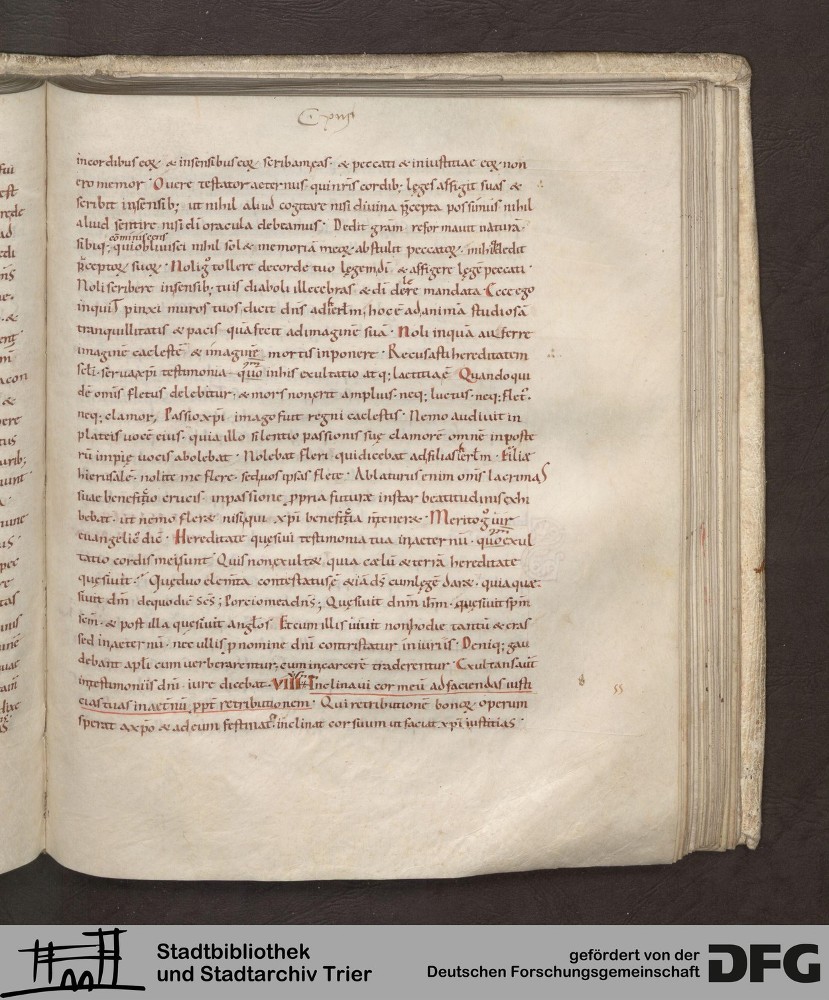 incordibus eoꝝ · & insensibus eoꝝ scribam eas · & peccati & iniustitiae eoꝝ non
ero memor · O uere testator aeternus · qui nr̄is cordib; leges affigit suas &
scribit insensib; ut nihil aliud cogitare nisi diuina p̄cepta possimus nihil
aliud sentire nisi dī oracula debeamus · Dedit grām reformauit naturā
sibiq; qui obliuisci nihil sol& memoriā meoꝝ abstulit peccatoꝝ · mihi dedit
p̄ceptoꝝ suoꝝ · Noli g̊ tollere decorde tuo legem dī & affigere legē peccati ·
Noli scribere insensib; tuis diaboli illecebras & dī delere mandata · Ecce ego
inquit pinxi muros tuos dicit dn̄s ad ierl̄m, hoc ē ad animā studiosā
tranquillitatis & pacis quā fecit ad imaginē suā · Noli inquā auferre
imaginē caelestē & imaginē mortis inponere · Recusasti hereditatem
sc̄li · serua xp̄i testimonia quō inhis exultatio atq; laetitia ē Quando qui
dē omīs fletus delebitur, & mors non erit amplius · neq; luctus · neq; flet᷒ ·
neq; clamor, Passio xp̄i imago fuit regni caelestis · Nemo audiuit in
plateis uocē eius · quia illo silentio passionis suę clamorē omnē inposte
rū impię uocis abolebat · Nolebat fleri qui dicebat ad filias ierl̄m · Filiæ
hierusalē · nolite me flere · sed uos ipsas flete · Ablaturus enim omīs lacrimas
suae beneficio crucis · inpassione ꝓpria futuræ instar beatitudinis exhi
bebat · ut nemo fleret nisi qui xp̄i beneficia n̄ teneret · Merito g̊ uir
euangelic᷒ dic̄ · Hereditate quęsiui testimonia tua inaeternū · quō exul
tatio cordis mei sunt Quis non exult& quia cælū & terrā hereditate
quęsiuit
siuit dm̄ dequo dic̄ sc̄s; Porcio mea dn̄s; Quęsiuit dnm̄ ihm̄ · quęsiuit sp̄m
sc̄m · & post illa quęsiuit angl̄os Et cum illis uiuit non hodie tantū & cras
sed inaeternū · nec ullis p nomine dnī contristatur iniuriis · Deniq; gau
debant apl̄i cum uerberarentur, cum incarcerē traderentur · Exultans
intestimoniis dnī · iure dicebat · VIIII Inclinaui cor meū ad faciendas iusti
cias tuas inaetnū ꝓpt̄ retributionem · Qui retributionē bonoꝝ operum
sperat a xp̄o & ad eum festinat, inclinat cor suum ut faciat xp̄i iustitias ·
Stadtbibliothek
und Stadtarchiv Trier
gefördert von der
Deutschen Forschungsgemeinschaft
DFG